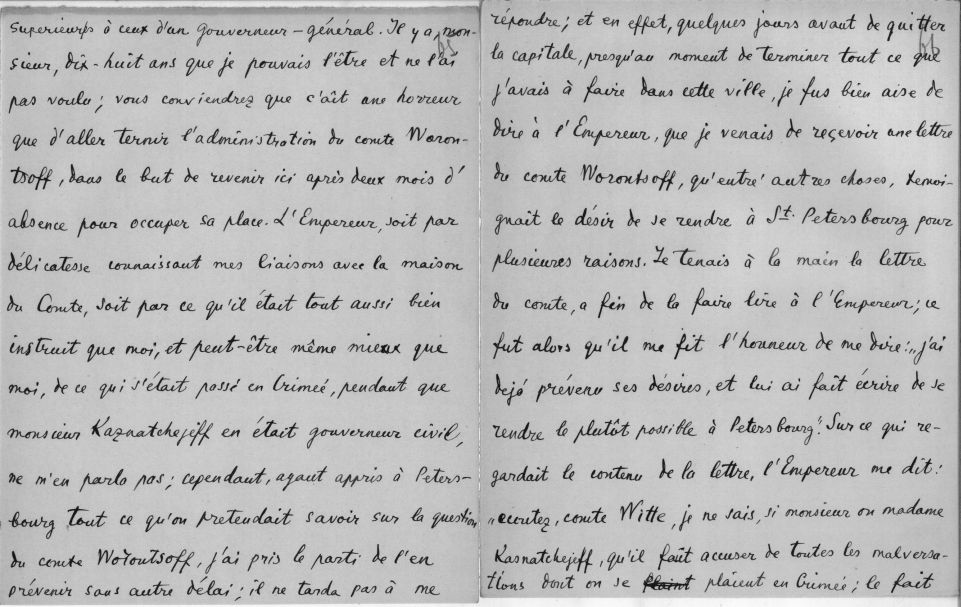 superieurs à ceux d'un Gouverneur-général. Il y a, mon-
sieur, dix-huit ans que je pouvais l'être et ne l'ai
pas voulu; vous conviendrez que c'aît une horreur
que d'aller ternir l'administration du comte Woron-
tsoff, dans le but de revenir ici après deux mois d'
absence pour occuper sa place. L'Empereur, soit par
délicatesse connaissant mes liaisons avec la maison
du Comte, soit par ce qu'il était tout aussi bien
instruit que moi, et peut-être même mieux que
moi, de ce qui s'était passé en Crimeé, pendant que
monsieur Kaznatchejeff en était gouverneur civil,
ne m'en parla pas; cependant, ayant appris à Peters-
bourg tout ce qu'on pretendait savoir sur la question
du comte Worontsoff, j'ai pris le parti de l'en
prévenir sans autre délai; il ne tarda pas à me
65
répondre; et en effet, quelques jours avant de quitter
la capitale, presqu'au moment de terminer tout ce que
j'avais à faire dans cette ville, je fus bien aise de
dire à l'Empereur, que je venais de reçevoir une lettre
du comte Worontsoff, qu'entre' autres choses, temoi-
gnait le désir de se rendre à St. Petersbourg pour
plusieures raisons. Je tenais à la main la lettre
du comte, a fin de la faire lire à l'Empereur; ce
fut alors qu'il me fit l'honneur de me dire: „j'ai
dejá prévenu ses désires, et lui ai fait écrire de se
rendre le plutôt possible à Petersbourg". Sur ce qui re-
gardait le contenu de la lettre, l'Empereur me dit:
„ecoutez, comte Witte, je ne sais, si monsieur ou madame
Kasnatchejeff, qu'il faût accuser de toutes les malversa-
tions dont on se plaint plaient en Crimeé; le fait
66